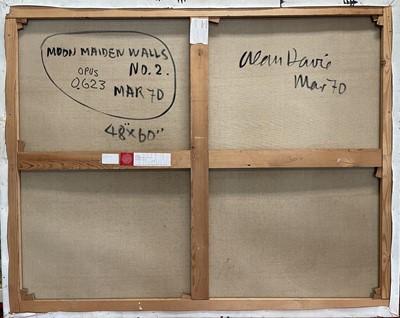 MOON MAIDEN WALLS
NO. 2.
OPUS
O,623
MAR 70
48" x 60"
Alan Davie
Mar 70